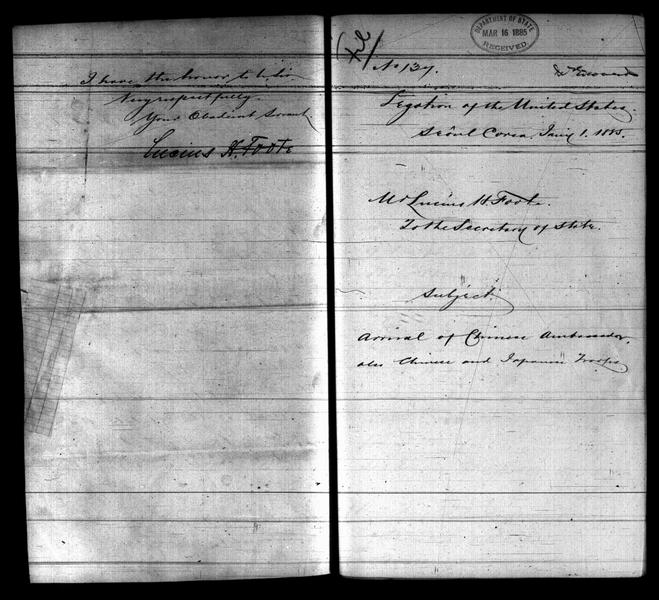 I have the honor to be Sir
Very respectfully
Your Obedient Servant
Lucius H. Foote
file
DEPARTMENT OF STATE
MAR 16 1885
RECEIVED
No 137.
Legation of the United States.
Seoul Corea, Jany 1. 1885.
Mr Lucius H. Foote.
To the Secretary of State.
Subject.
Arrival of Chinese Ambassador,
also Chinese and Japanese Troops